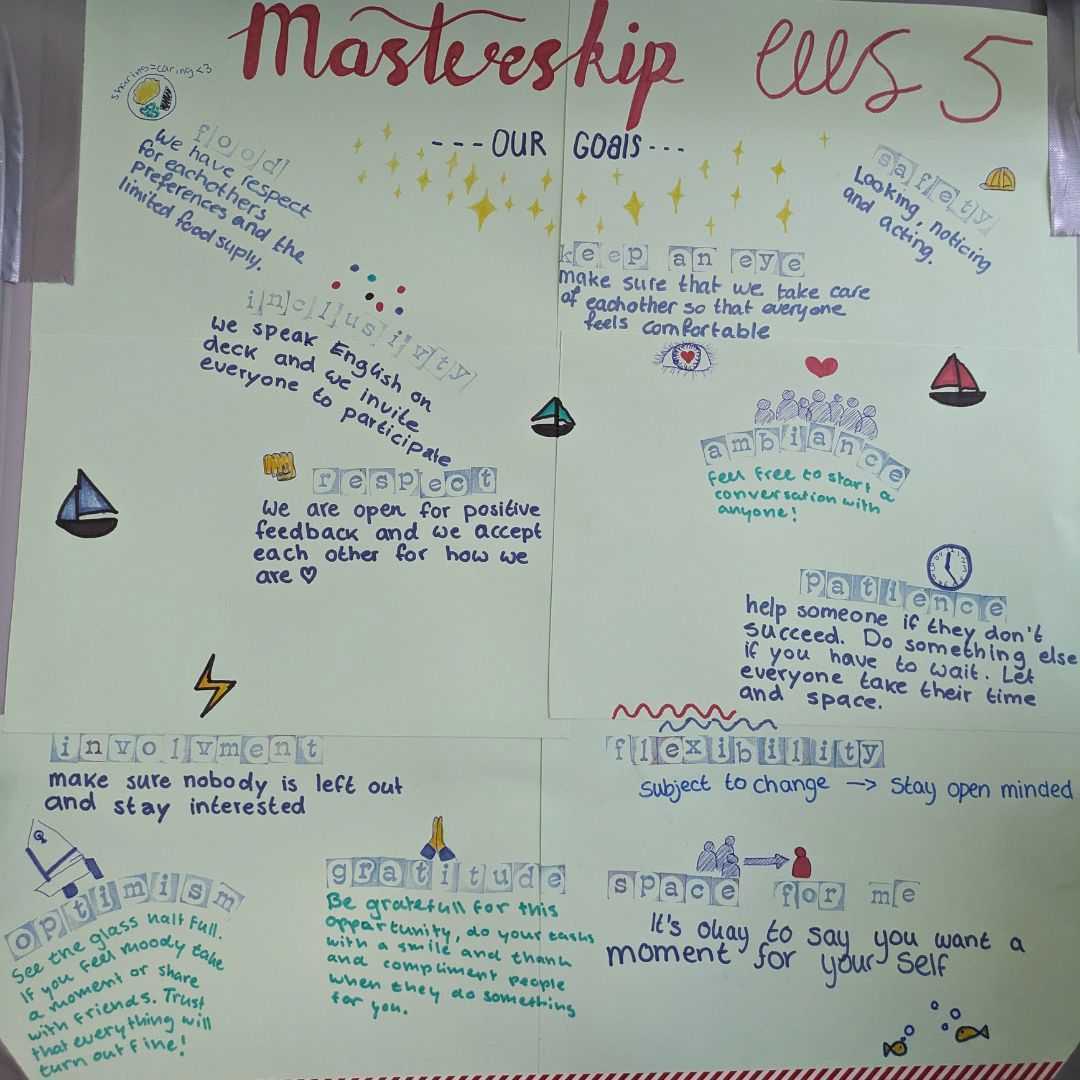 Masterskip
5
sharing=caring <3
--- OUR GOALS ---
food
We have respect
for eachothers
preferences and the
limited food suply.
safety
Looking, noticing
and acting.
keep an eye
make sure that we take care
of eachother so that everyone
feels comfortable
inclusivity
we speak English on
deck and we invite
everyone to participate
ambiance
feel free to start a
conversation with
anyone!
respect
We are open for positive
feedback and we accept
each other for how we
are ♡
patience
help someone if they don't
succeed. Do something else
if you have to wait. Let
everyone take their time
and space.
involvment
make sure nobody is left out
and stay interested
flexibility
subject to change → stay open minded
optimism
See the glass half full.
If you feel moody take
a moment or share
with friends. Trust
that everything will
turn out fine!
gratitude
Be gratefull for this
oppartunity, do your tasks
with a smile and thank
and compliment people
when they do something
for you.
space for me
It's okay to say you want a
moment for your self